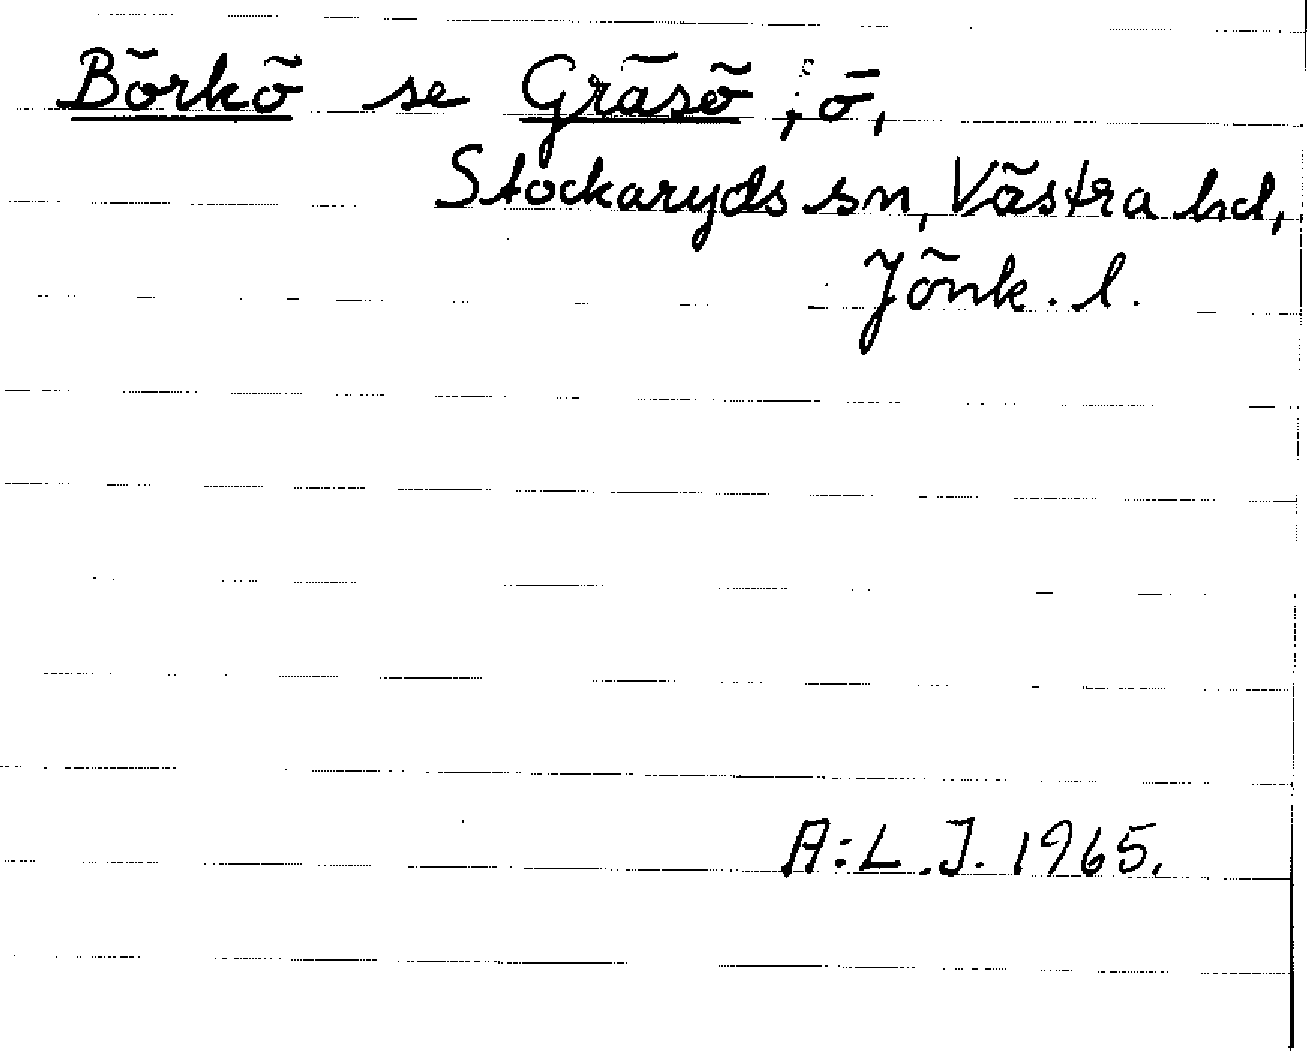 Börkö se Gräsö, ö,
Stockaryds sn, Västra hd,
Jönk. l.
A:L.J. 1965.